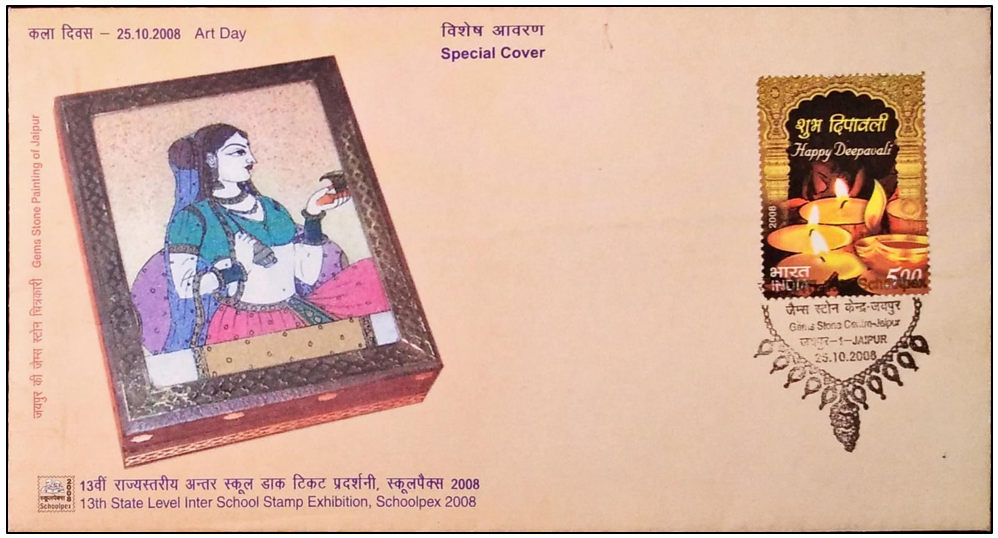 कला दिवस – 25.10.2008 Art Day
विशेष आवरण
Special Cover
जयपुर की जेम्स स्टोन चित्रकारी Gems Stone Painting of Jaipur
शुभ दिपावली
Happy Deepavali
2008
भारत
INDIA
500
Schoolpex
जैम्स स्टोन केन्द्र-जयपुर
Gems Stone Centre-Jaipur
जयपुर-1-JAIPUR
25.10.2008
स्कूलपैक्स
2008
Schoolpex
13वीं राज्यस्तरीय अन्तर स्कूल डाक टिकट प्रदर्शनी, स्कूलपैक्स 2008
13th State Level Inter School Stamp Exhibition, Schoolpex 2008